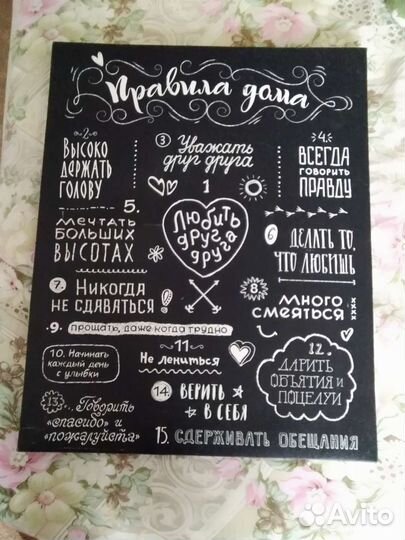 Правила дома
2.
ВЫСОКО
ДЕРЖАТЬ
ГОЛОВУ
3 Уважать
друг друга
4.
ВСЕГДА
ГОВОРИТЬ
ПРАВДУ
1
Любить
друг
друга
5.
МЕЧТАТЬ
БОЛЬШИХ
ВЫСОТАХ
6 ДЕЛАТЬ ТО,
ЧТО ЛЮБИШЬ
7. НИКОГДА
НЕ СДАВАТЬСЯ
8.
МНОГО
СМЕЯТЬСЯ
9. ПРОЩАТЬ, ДАЖЕ КОГДА ТРУДНО
10. Начинать
каждый день
с улыбки
11
Не лениться
12.
ДАРИТЬ
ОБЪЯТИЯ И
ПОЦЕЛУИ
13. Говорить
«спасибо» и
«пожалуйста»
14 ВЕРИТЬ
В СЕБЯ
15. СДЕРЖИВАТЬ ОБЕЩАНИЯ
Avito